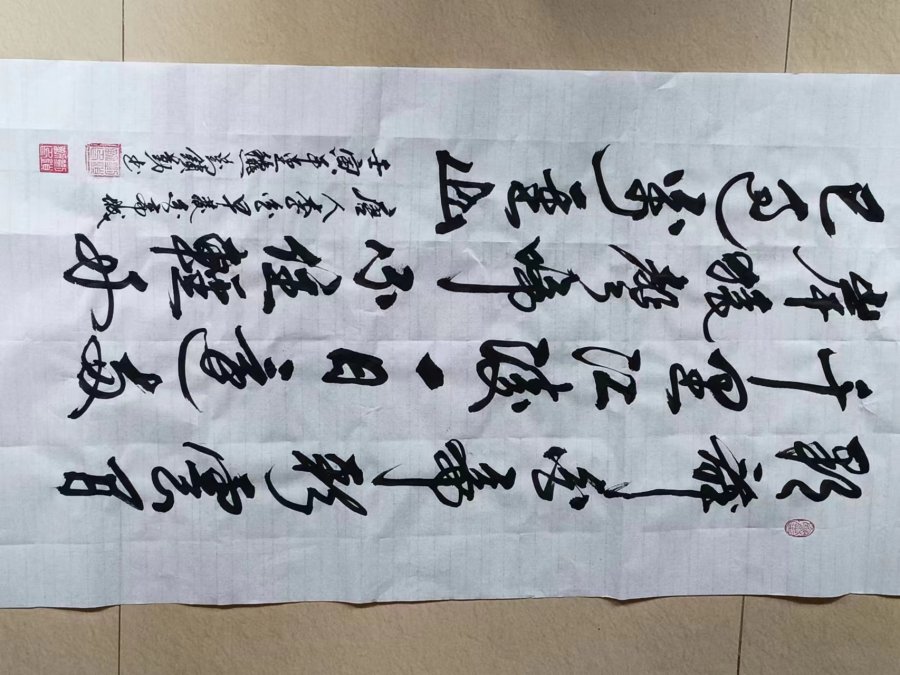 朝辭白帝彩雲間
千里江陵一日還兩
岸猿聲啼不住輕舟
已過萬重山
唐人李白早發白帝城
壬寅年